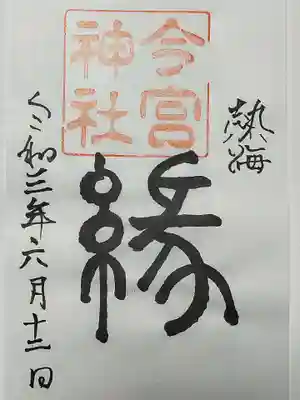 熱海
今宮
神社
縁
令和三年六月十二日